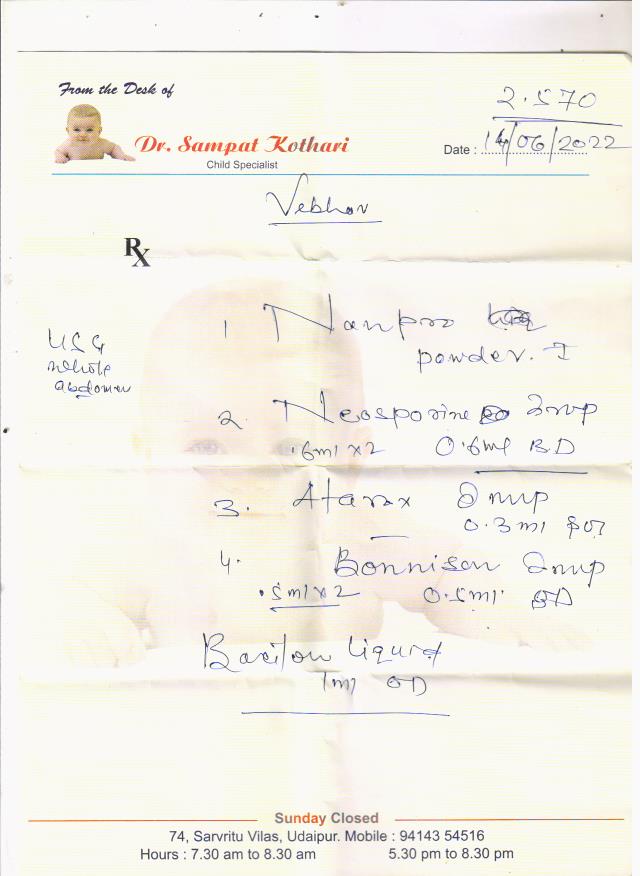 From the Desk of
Dr. Sampat Kothari
Child Specialist
2.570
Date : 14/06/2022
Vebhav
Rx
USG
whole
abdomen
1 Nanpro
powder. I
2. Neosporine Drop
.6ml x 2 0.6ml BD
3. Atarax Drop
0.3ml
4. Bonnisan Drop
.5ml x 2 0.5ml BD
liquid
1ml OD
Sunday Closed
74, Sarvritu Vilas, Udaipur. Mobile : 94143 54516
Hours : 7.30 am to 8.30 am 5.30 pm to 8.30 pm